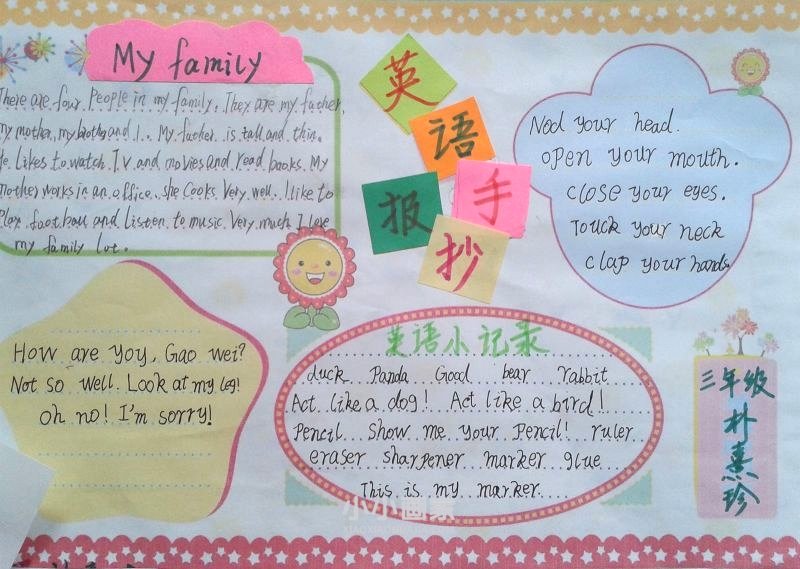 My family
There are four People in my family. They are my father,
my mother, my brother and I. My father is tall and thin.
He Likes to watch TV and movies and read books. My
mother works in an office. she Cooks Very well. I like to
Play football and Listen to music Very much I Love
my family Lot.
英
语
手
报
抄
Nod your head.
open your mouth.
close your eyes.
Touck your neck
clap your hands.
How are you, Gao wei?
Not so well. Look at my leg!
oh no! I'm sorry!
英语小记录
duck Panda Good bear rabbit
Act like a dog! Act like a bird!
Pencil Show me your Pencil! ruler
eraser sharpener marker glue
This is my marker
三年级
朴熹珍
小小画家